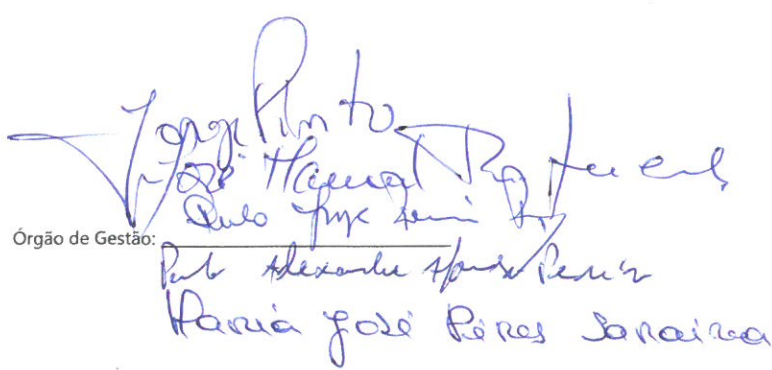 Jorge Pinto
José Manuel
Paulo Jorge
Órgão de Gestão:
Alexandre Afonso Pereira
Maria José Pires Saraiva